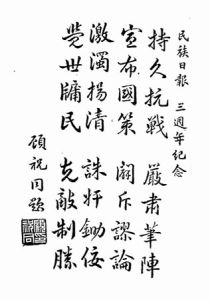 民族日報 三週年紀念
持久抗戰 嚴肅筆陣
宣布國策 闢斥謬論
激濁揚清 誅奸鋤佞
覺世牖民 克敵制勝
顧祝同題